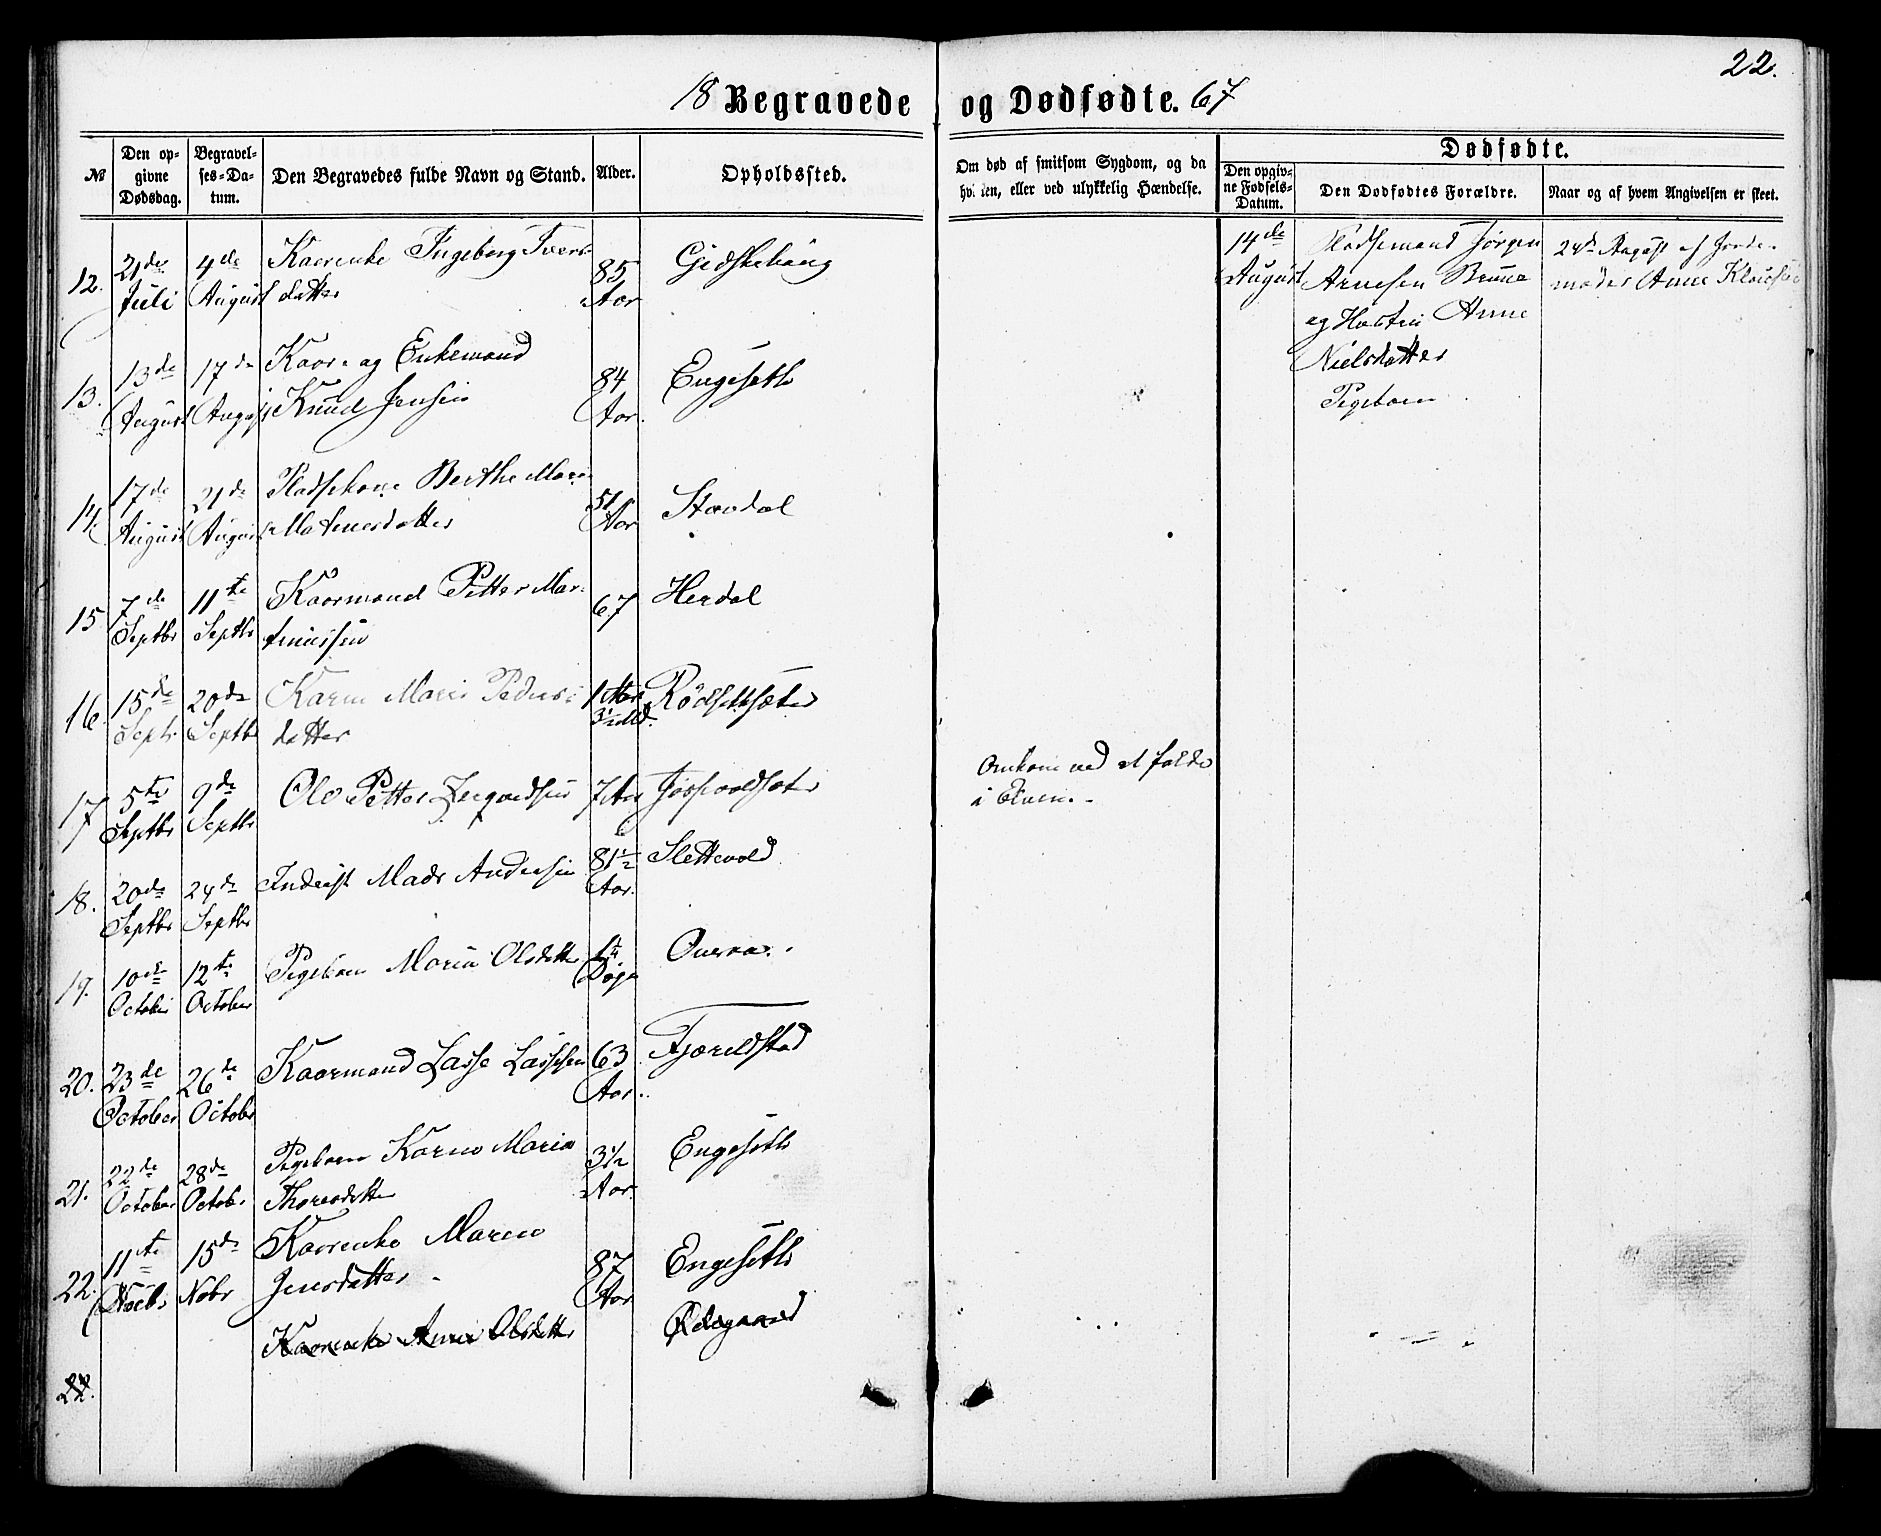 22.
18 Begravede og Dødfødte. 67
№
Den opgivne Dødsdag.
Begravelses-Datum.
Den Begravedes fulde Navn og Stand.
Alder.
Opholdssted.
Om død af smitsom Sygdom, og da hvilken, eller ved ulykkelig Hændelse.
Dødfødte.
Den opgivne Fødsels-Datum.
Den Dødfødtes Forældre.
Naar og af hvem Angivelsen er skeet.
12. 21de Juli 4de August Kaarenke Ingeborg Iversdatter 85 Aar Gjedskehaug
14de August Pladsemand Jørgen
Arnesen Bruna
og Hustru Anne
Nielsdatter
Pigebarn
24de August af Jordemoder Anne
13. 13de August 17de August Kaar- og Enkemand
Knud Jensen 84 Aar. Engeseth
14. 17de August 21de August Pladsekone Berthe
51 Aar
15. 7de Septbr 11te Septbr Kaarmand Petter Martinussen 67 Herdal
16. 15de Septr 20de Septbr Karen Marie Pedersdatter 1 Aar 3½ Md. Rødsetsæter
17 5te Septbr 9de Septbr Ole Petter 7 Aar
Omkom ved at falde
i Elven.
18. 20de Septbr 24de Septbr Inderst Mads Andersen 81½ Aar. Slettevold
19. 10de October 12te October Pigebarn Maria Olsdatter Døgn Overaa.
20. 23de October 26de October Kaarmand Lasse Lassesen 63 Aar. Fjøreldstad
21. 22de October 28de October Pigebarn Karen Maria
Thoresdatter 3½ Aar. Engeseth
22. 11te Novbr 15de Nobr Kaarenke Maren
Jensdatter 87 Aar Engeseth
Kaarenke Anne Olsdatter Ødegaard